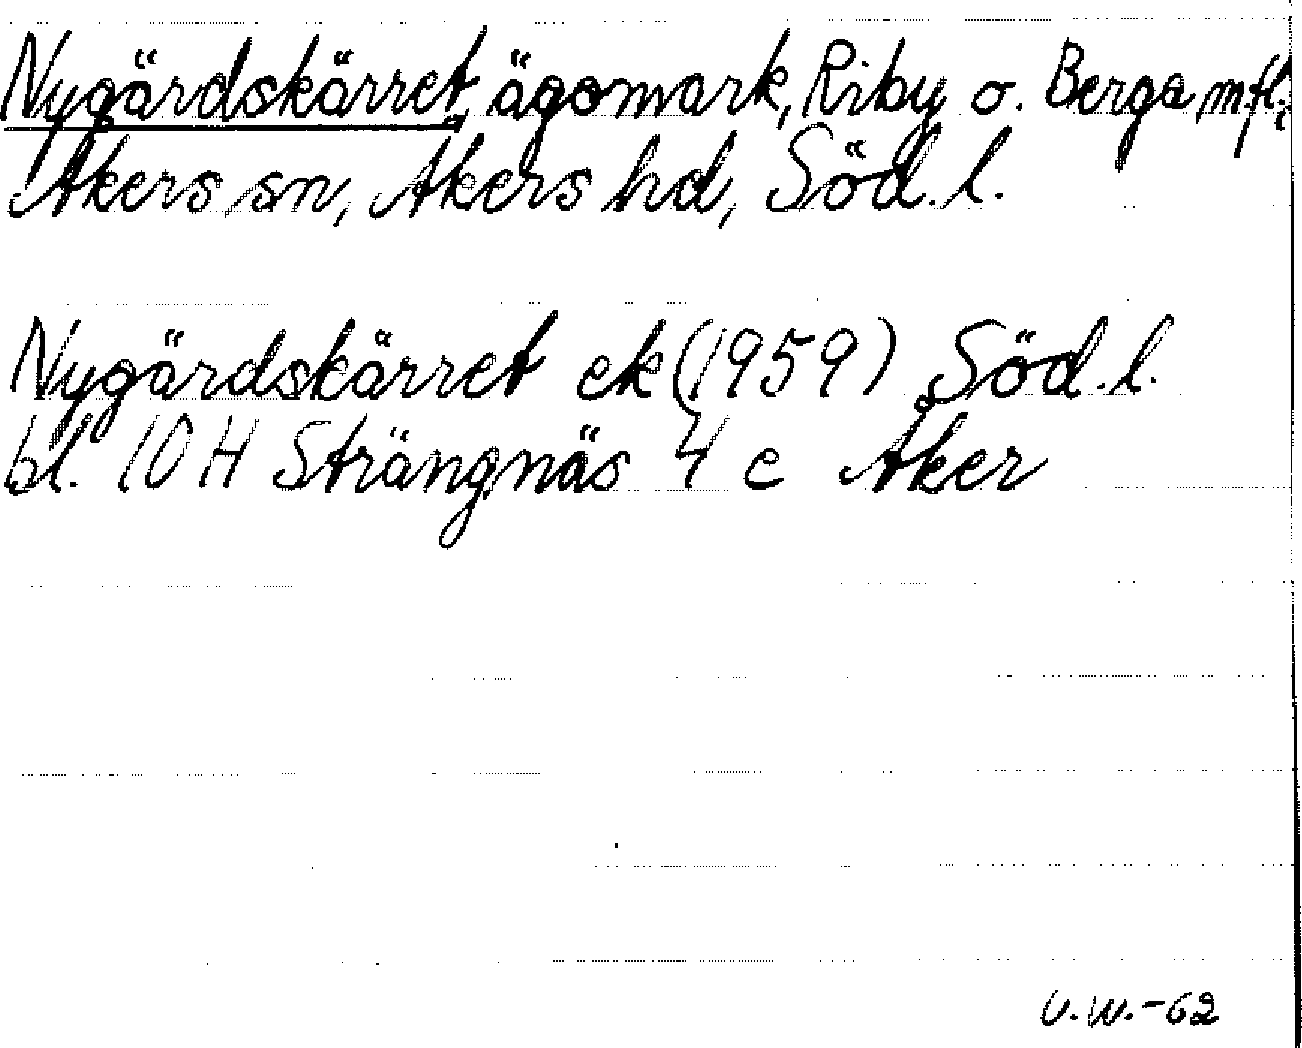 Nygärdskärret, ägomark, Riby o. Berga m.fl.,
Åkers sn, Åkers hd, Söd.l.
Nygärdskärret ek (1959) Söd.l.
bl. 10 H Strängnäs 4 c Åker
U.W.-62